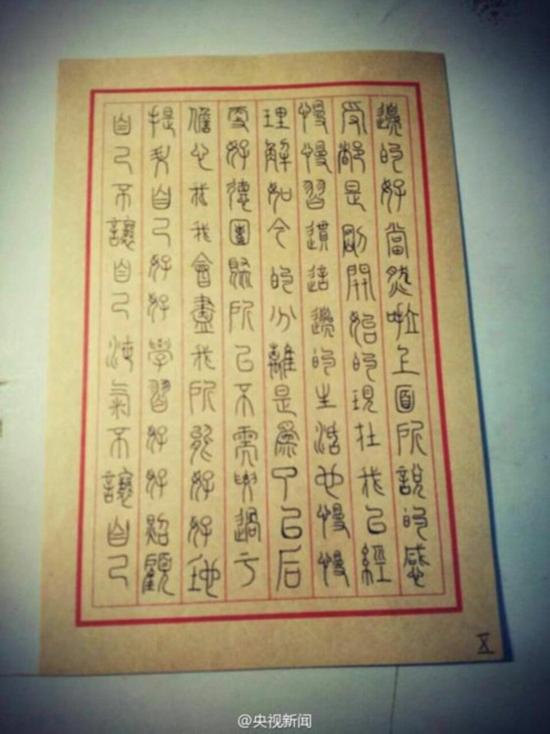 邊的好當然啦上面所說的感
受都是剛開始的現在我已經
慢慢習慣這邊的生活也慢慢
理解如今的分離是為了以后
更好德團聚所以不需要過于
擔心我我會盡我所能好好地
提利自己好好學習好好照顧
自己不讓自己淘氣不讓自己
X
@央视新闻